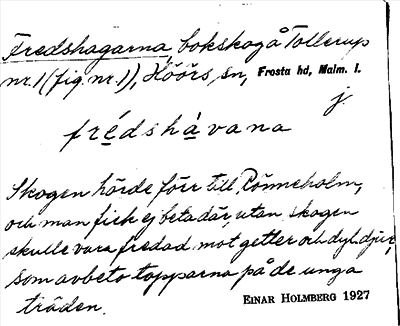 Fredshagarna, bokskog å Tollerup
nr. 1 (fig. nr. 1), Höörs sn, Frosta hd, Malm. l.
j.
frédshàvana
Skogen hörde förr till Rönneholm,
och man fick ej beta där, utan skogen
skulle vara fredad mot getter och dyl. djur,
som avbeto topparna på de unga
träden.
EINAR HOLMBERG 1927